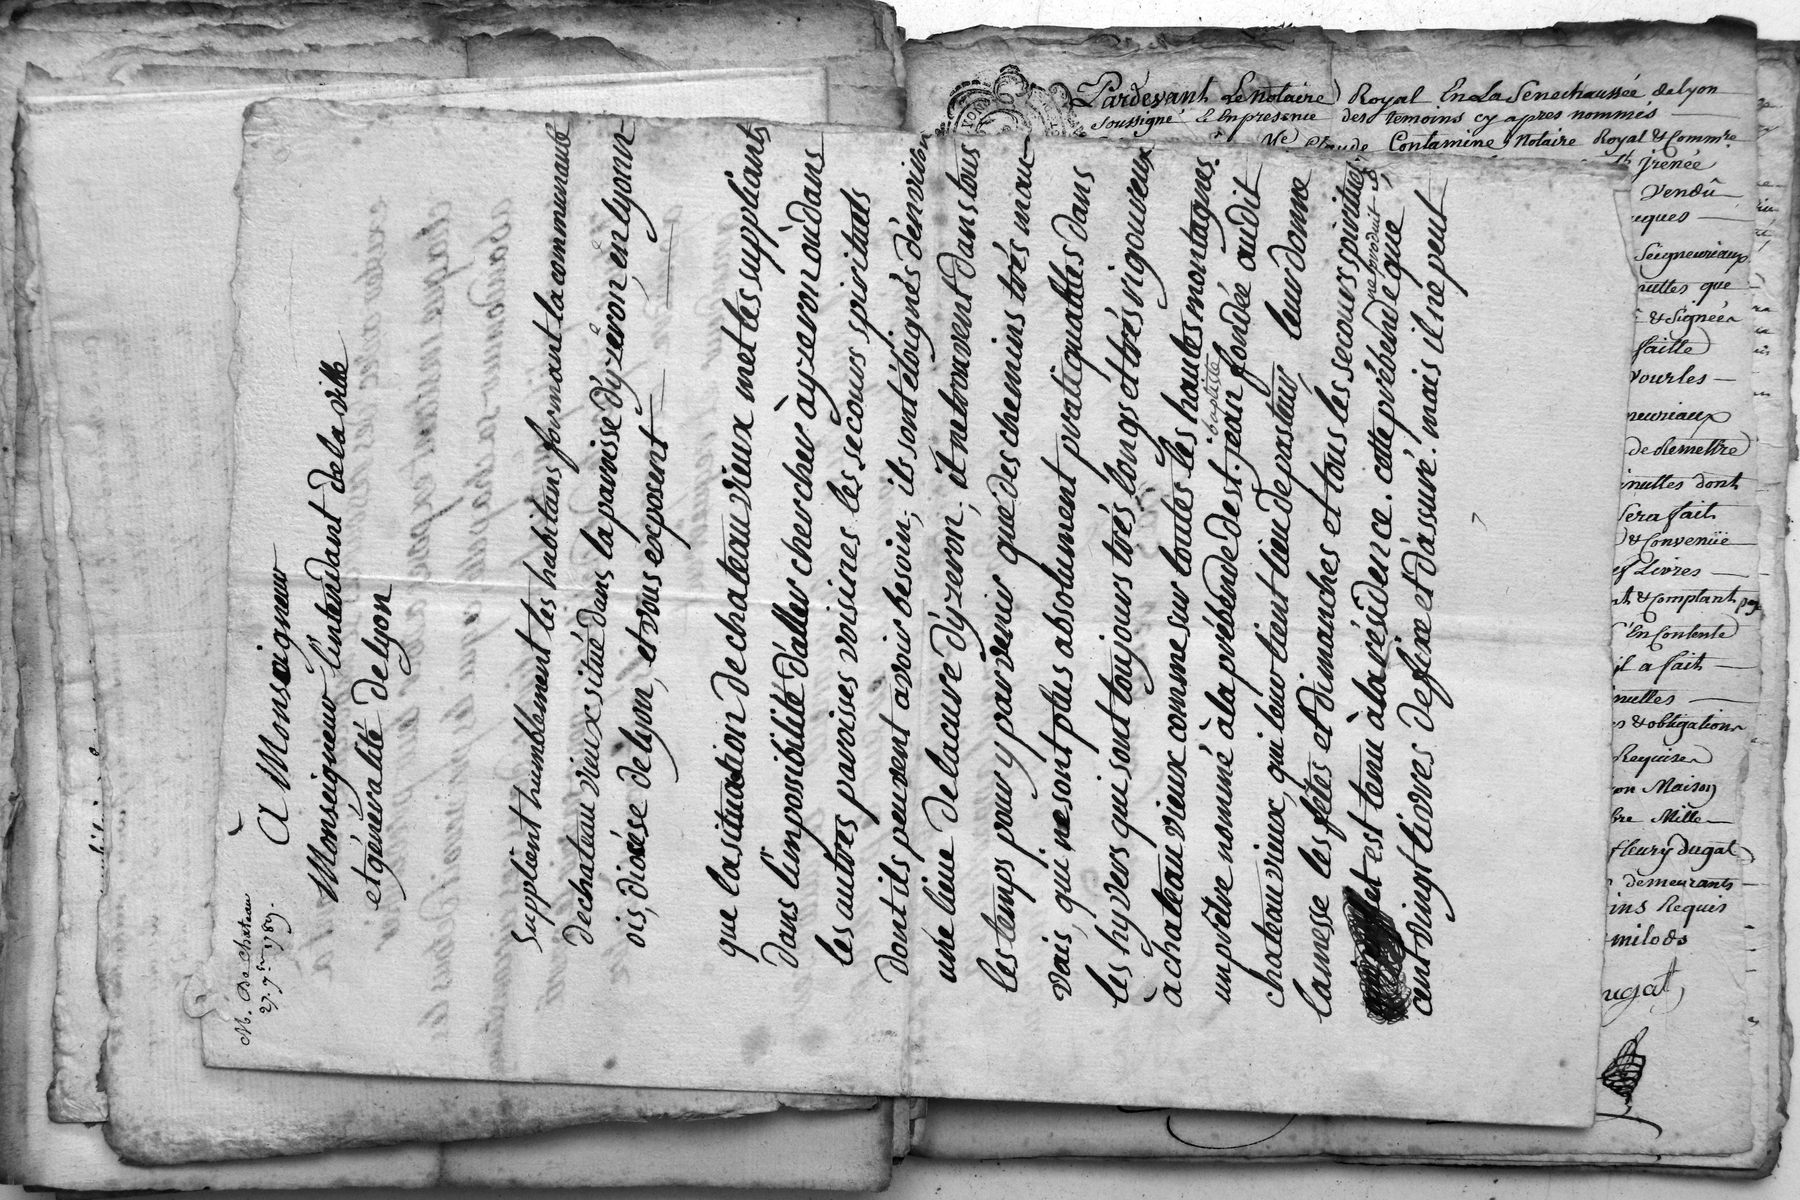 M. De chateau
27. 7bre 1789.
À Monseigneur
Monseigneur l'intendant dela ville
et généralité de lyon
supplient humblement les habitans formant la communauté
dechateau vieux situé dans la paroisse d'yzeron, en lyonn
ois, diocèse de lyon, et vous exposent
que la situation de chateau vieux met les suppliants
dans l'impossibilité d'aller chercher à yzeron où dans
les autres paroises voisines les secours spirituels
dont ils peuvent avoir besoin; ils sont éloignés d'environ
une lieue de la cure d'yzeron, il ne trouvent dans tous
les temps pour y parvenir que des chemins trés mau
vais, qui ne sont plus absolument pratiquables dans
les hyvers qui sont toujours trés longs et trés rigoureux
à chateau vieux comme sur toutes les hautes montagnes.
baptiste
un prêtre nommé à la prébende de st. jean fondée au dit
chateau vieux, qui leur tient lieu de pasteur, leur donne
la messe les fêtes et dimanches et tous les secours spirituels
ne produit qu'
et est tenu à la résidence. cette prébende que
cent vingt livres de fixe et d'assuré. mais il ne peut
Pardevant Le Notaire Royal En La Senechaussée de Lyon
soussigné & En presence des temoins cy apres nommés
Contamine Notaire Royal & Comm.re
jrenée
Vendû
uques
Seigneuriaux
nuttes que
& Signéea
faitte
Vourles
neuriaux
de Remettre
inuttes dont
sera fait
& Convenüe
Livres
nt & Comptant
En Contente
il a fait
nuttes
& obligations
Requise
on Maison
bre Mille
fleury dugat
demeurants
ins Requis
milods
ugat